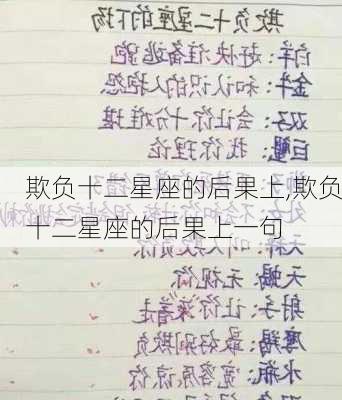 欺负十二星座的下场
白羊：赶快准备逃跑
金牛：和认识的人抱怨
双子：会让你十分难堪
巨蟹：找你理论
欺负十二星座的后果上,欺负
十二星座的后果上一句
天蝎：无视你
射手：让你滚着走
摩羯：最好别欺负
水瓶：宽容原谅你